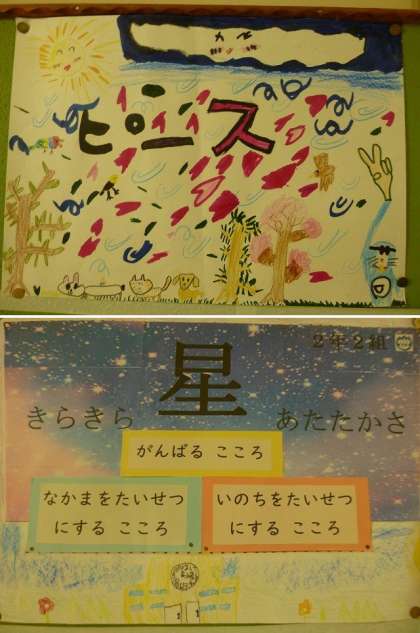 ピース
2年2組
星
きらきら
あたたかさ
がんばる こころ
なかまをたいせつ
にする こころ
いのちをたいせつ
にする こころ